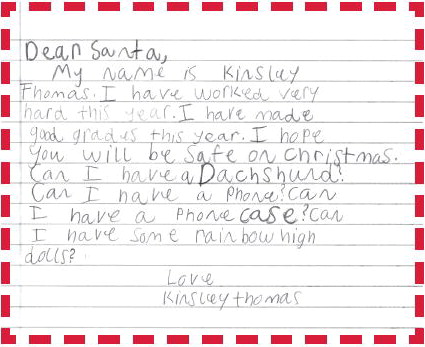 Dear Santa,
My name is Kinsley
Thomas. I have worked very
hard this year. I have made
good grades this year. I hope
You will be safe on Christmas.
Can I have a Dachshund?
Can I have a Phone? Can
I have a Phone case? Can
I have some rainbow high
dolls?
Love
Kinsley thomas